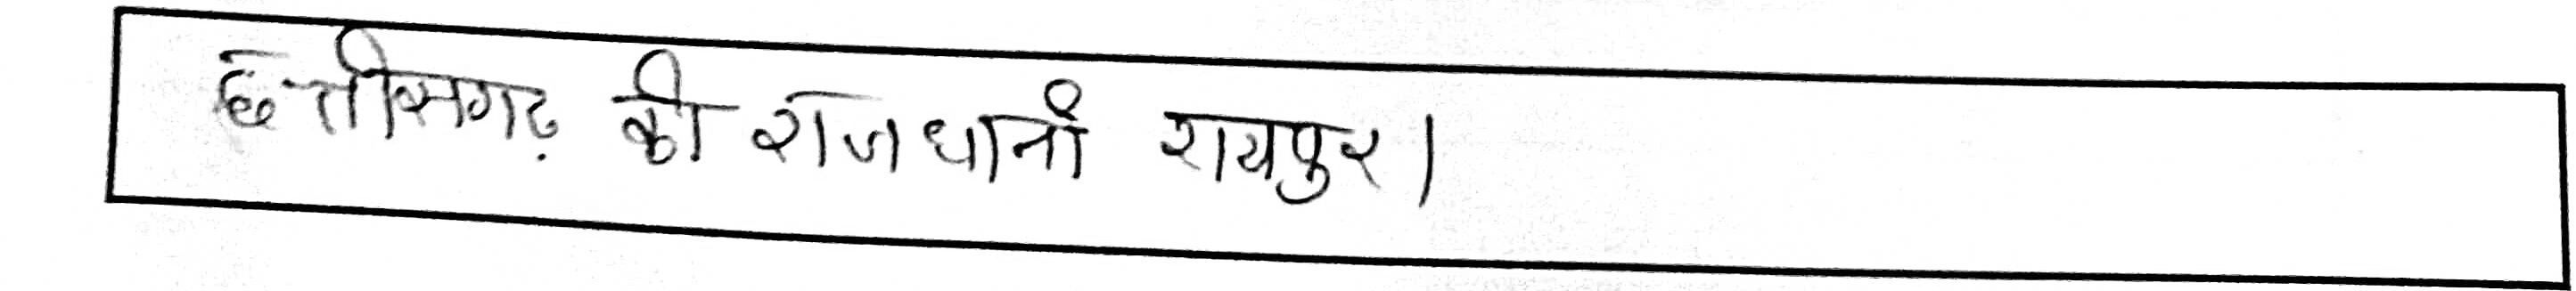 छत्तीसगढ़ की राजधानी रायपुर।